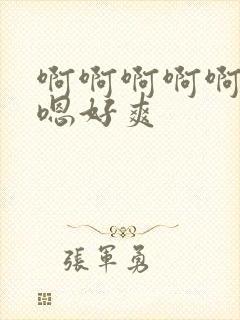 啊啊啊啊啊
嗯好爽
張軍勇